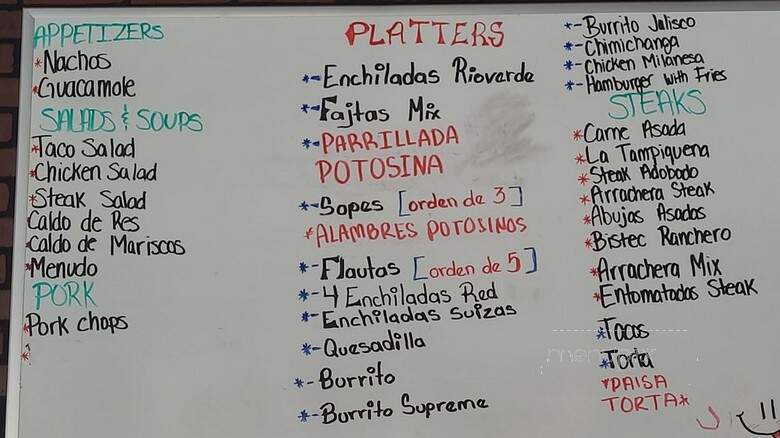 APPETIZERS
*Nachos
*Guacamole
SALADS & SOUPS
*Taco Salad
*Chicken Salad
*Steak Salad
Caldo de Res
*Caldo de Mariscos
*Menudo
PORK
*Pork chops
*
PLATTERS
*-Enchiladas Rioverde
*-Fajtas Mix
*-PARRILLADA
POTOSINA
*-Sopes [orden de 3]
*ALAMBRES POTOSINOS
*-Flautas [orden de 5]
*-4 Enchiladas Red
*-Enchiladas suizas
*-Quesadilla
*-Burrito
*-Burrito Supreme
*-Burrito Jalisco
*-Chimichanga
*-Chicken Milanesa
*-Hamburger with Fries
STEAKS
*Carne Asada
*La Tampiquena
*Steak Adobado
*Arrachera Steak
*Abujas Asados
*Bistec Ranchero
*Arrachera Mix
*Entomatadas Steak
*Tacos
*Torta
*PAISA
TORTA*